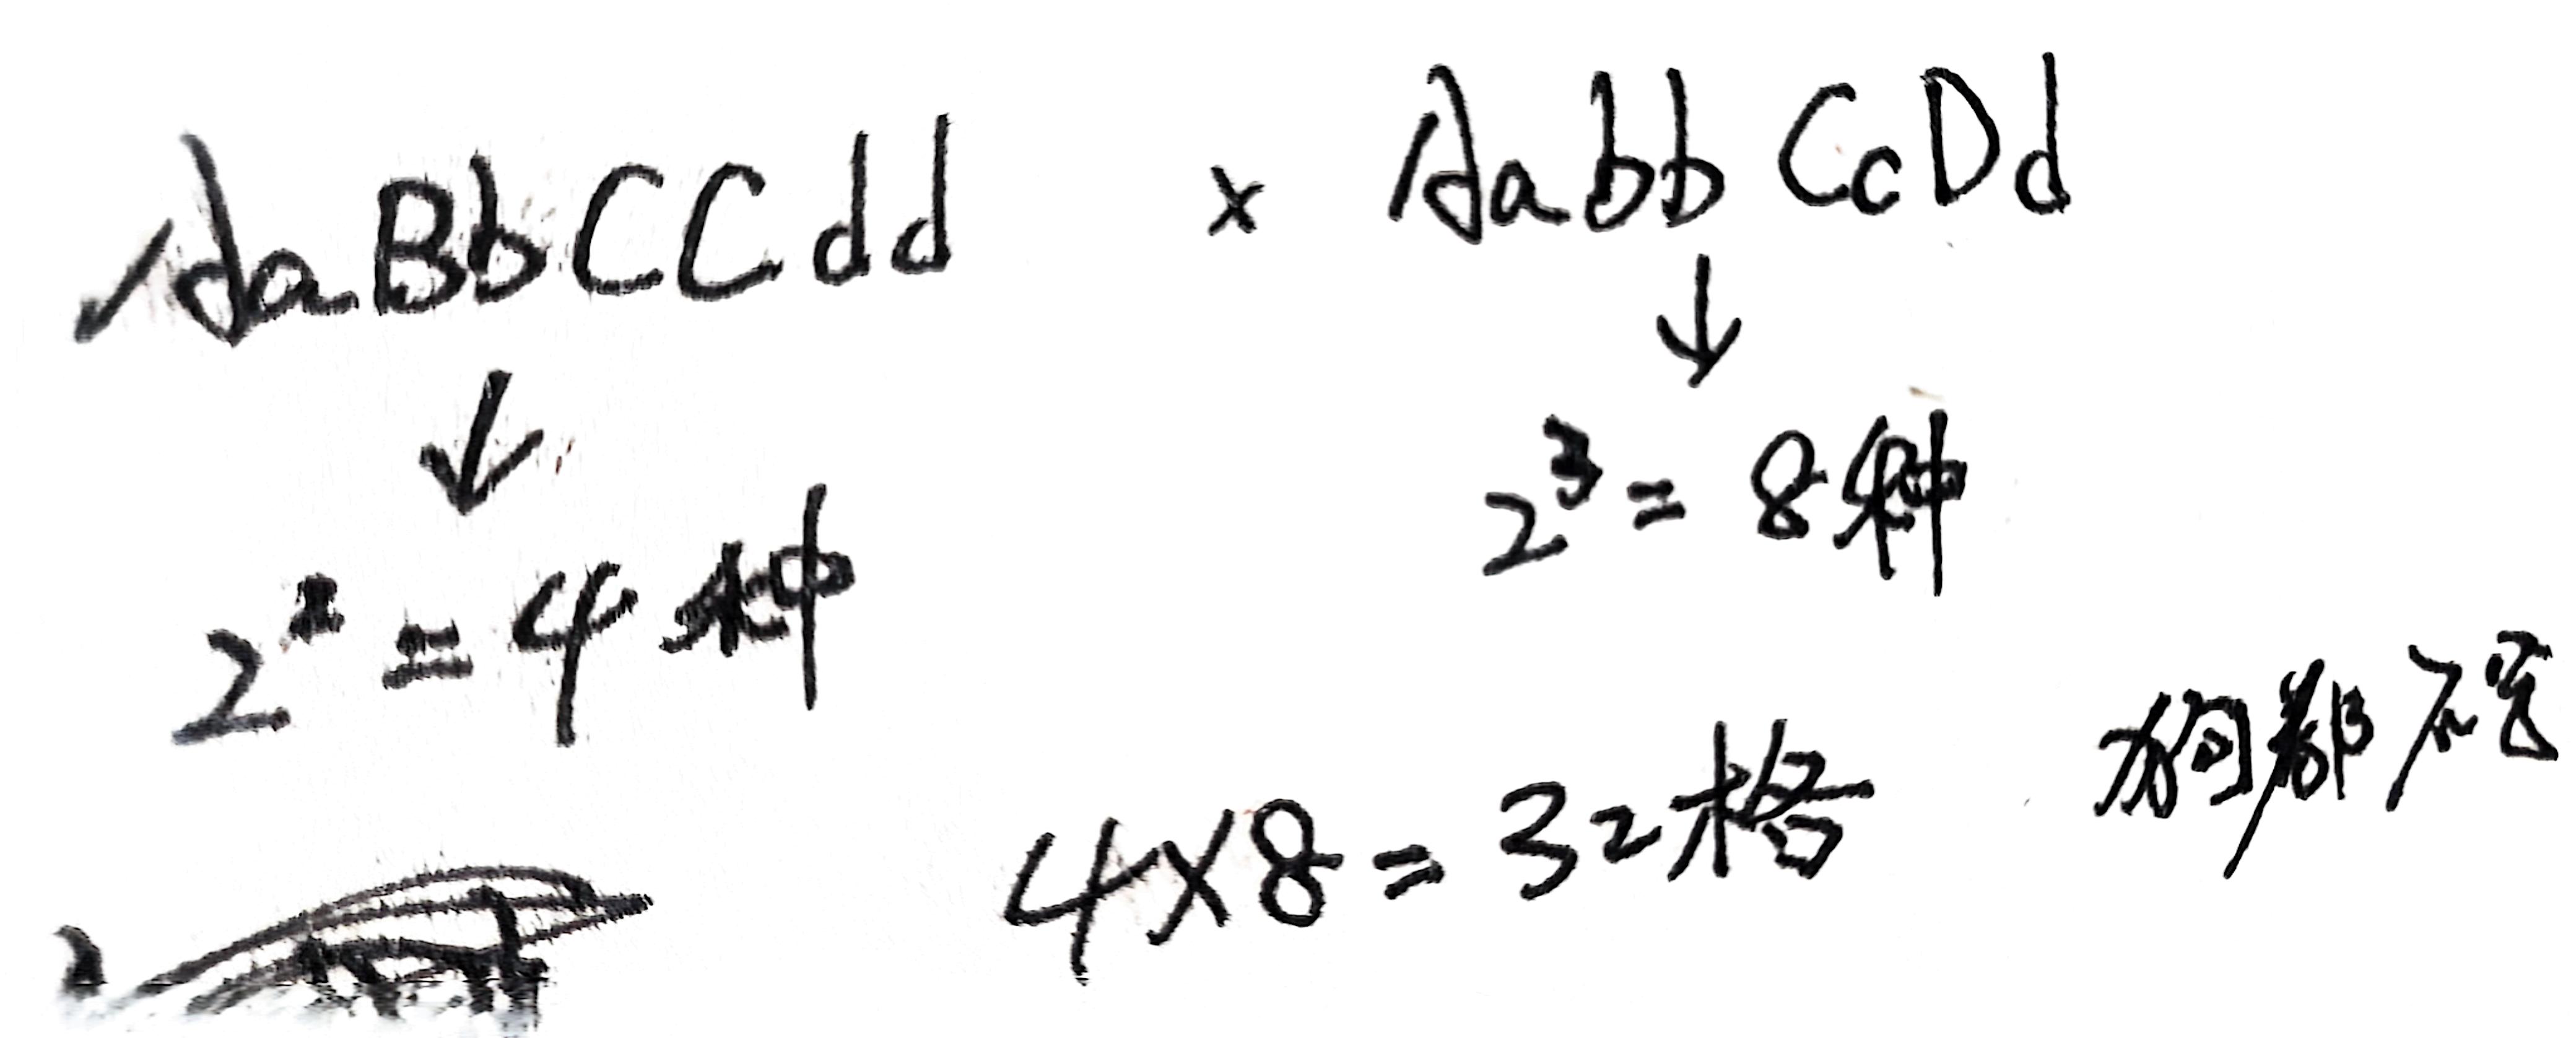 AaBbCCdd × AabbCcDd
↓ ↓
2² = 4种 2³ = 8种
4×8 = 32格 狗都不写